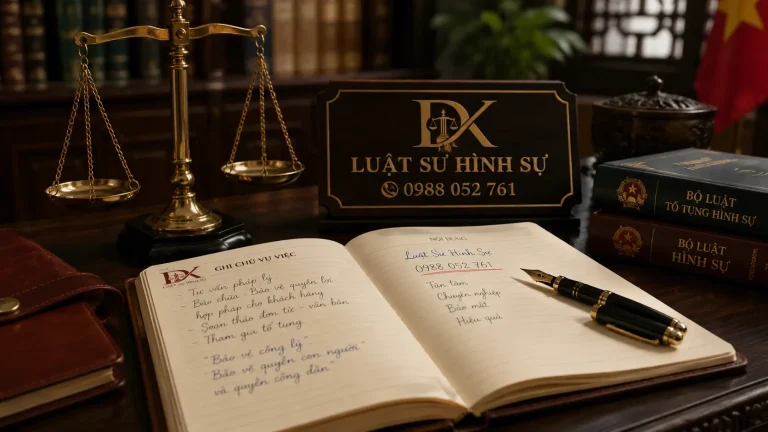 DK
LUẬT SƯ HÌNH SỰ
0988 052 761
BỘ LUẬT
TỐ TỤNG HÌNH SỰ
BỘ LUẬT
HÌNH SỰ
DK
GHI CHÚ VỤ VIỆC
- Tư vấn pháp lý
- Bào chữa Bảo vệ quyền lợi
hợp pháp cho khách hàng
- Soạn thảo đơn từ - văn bản
- Tham gia tố tụng
"Bảo vệ công lý"
Bảo vệ quyền con người"
và quyền công dân"
NỘI DUNG
Luật Sư Hình Sự
0988 052 761
Tận tâm
Chuyên nghiệp
Bảo mật
Hiệu quả